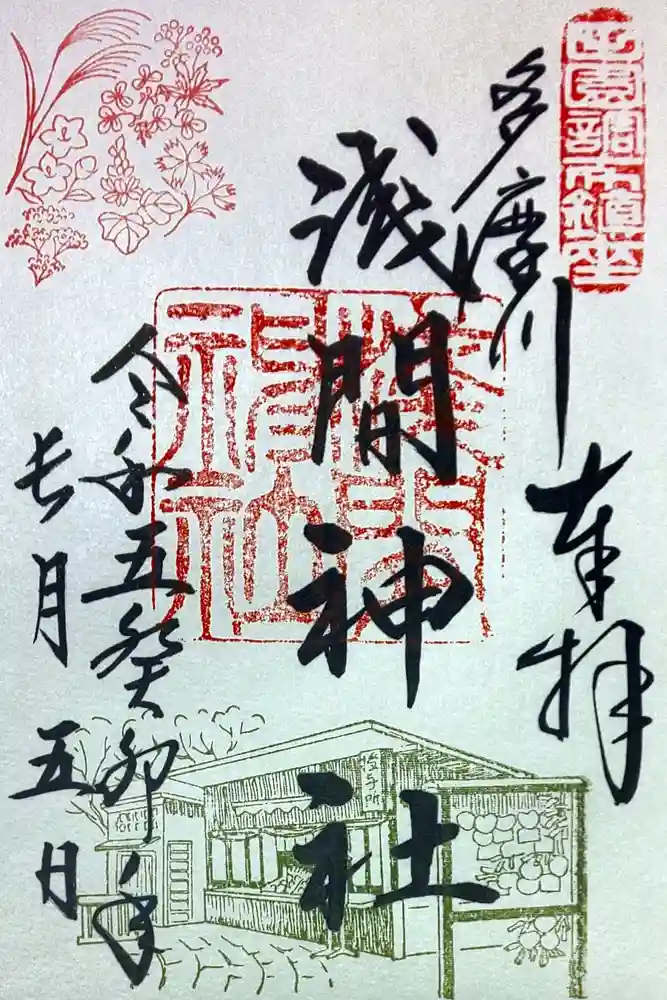 田園調布鎮座
奉拝
多摩川
浅間神社
浅間神社
令和五癸卯年
長月五日
授与所